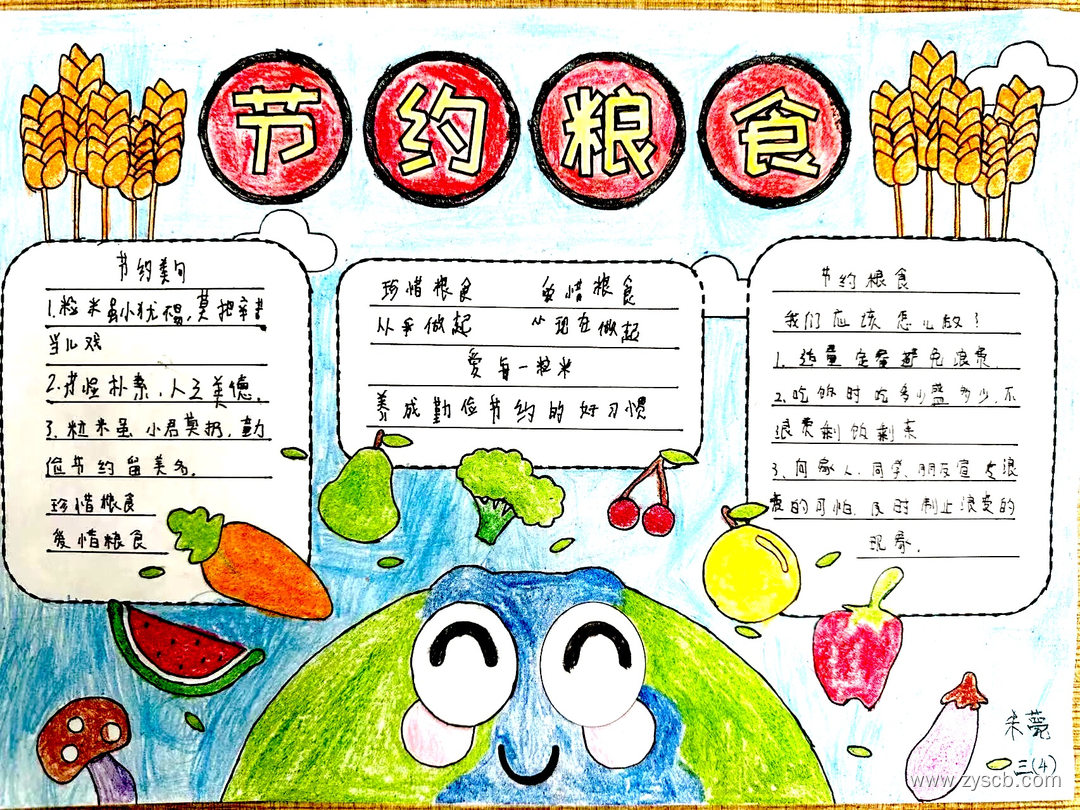 节约粮食
节约美句
1.粒米虽小犹惜,莫把辛苦
当儿戏
2.节俭朴素,人之美德.
3.粒米虽小君莫扔,勤
俭节约留美名.
珍惜粮食
爱惜粮食
珍惜粮食 爱惜粮食
从我做起 从现在做起
爱每一粒米
养成勤俭节约的好习惯
节约粮食
我们应该怎么做?
1、适量定量避免浪费.
2、吃饭时吃多少盛多少,不
浪费剩饭剩菜
3、向家人、同学、朋友宣 浪
费的可怕.及时制止浪费的
现象.
朱
三(4)
www.zyscb.com